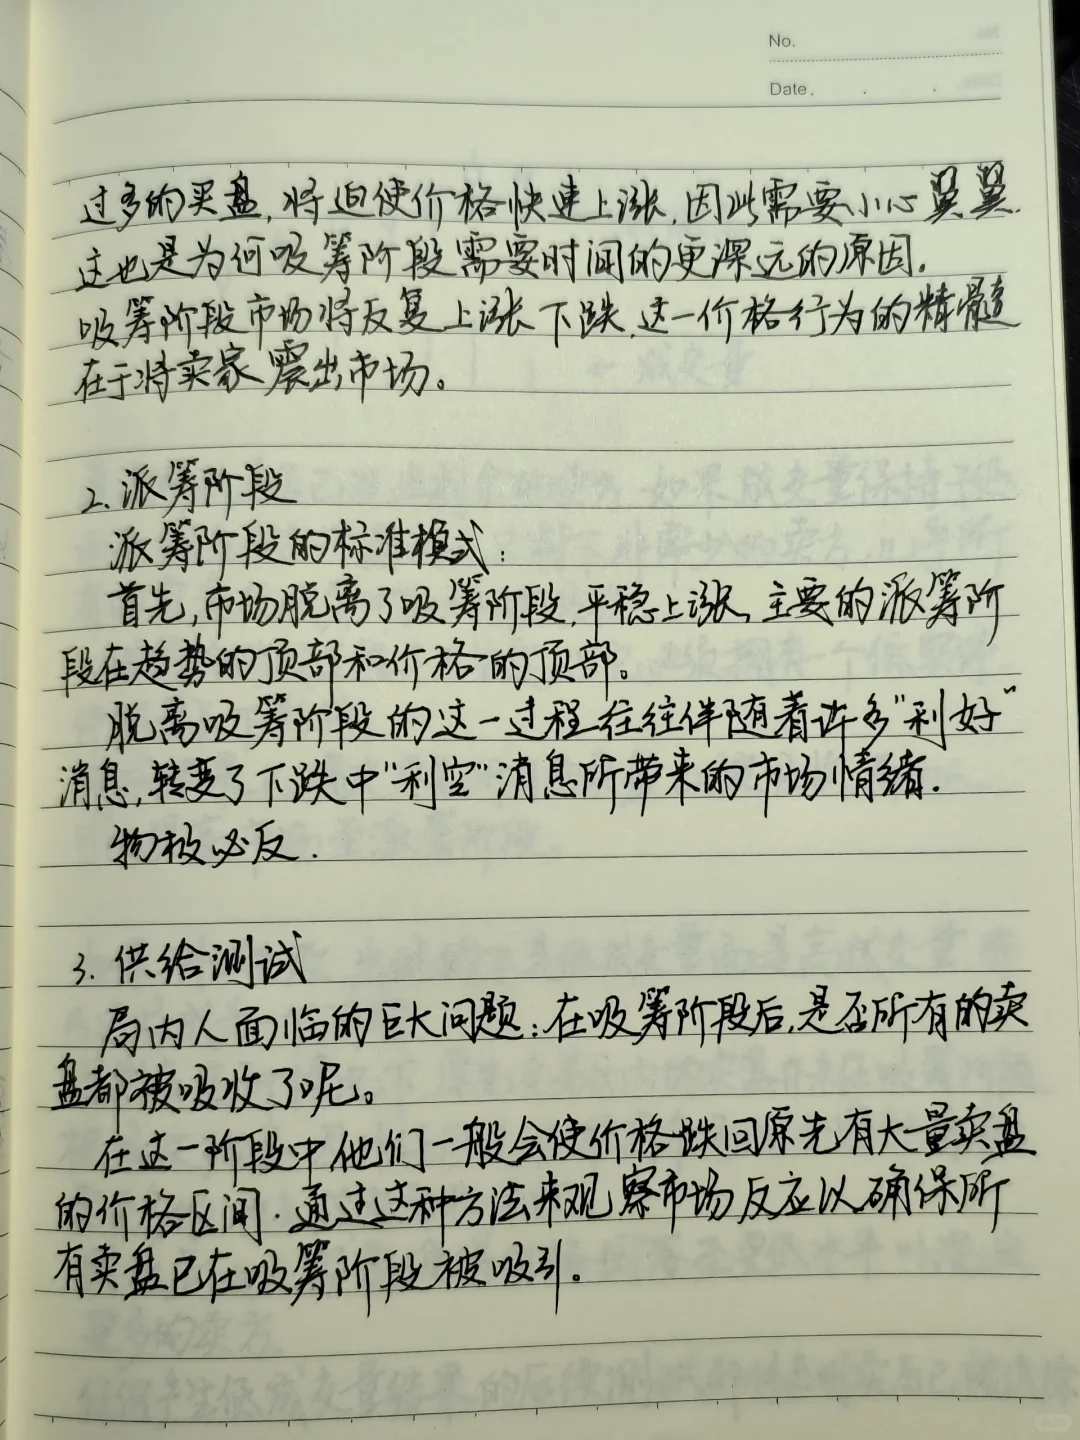 No.
Date.
过多的买盘,将迫使价格快速上涨,因此需要小心翼翼.
这也是为何吸筹阶段需要时间的更深远的原因.
吸筹阶段市场将反复上涨下跌,这一价格行为的精髓
在于将卖家震出市场。
2.派筹阶段
派筹阶段的标准模式:
首先,市场脱离了吸筹阶段,平稳上涨,主要的派筹阶
段在趋势的顶部和价格的顶部。
脱离吸筹阶段的这一过程往往伴随着许多"利好"
消息,转变了下跌中"利空"消息所带来的市场情绪.
物极必反.
3.供给测试
局内人面临的巨大问题:在吸筹阶段后,是否所有的卖
盘都被吸收了呢。
在这一阶段中他们一般会使价格跌回原先有大量卖盘
的价格区间.通过这种方法来观察市场反应以确保所
有卖盘已在吸筹阶段被吸引。